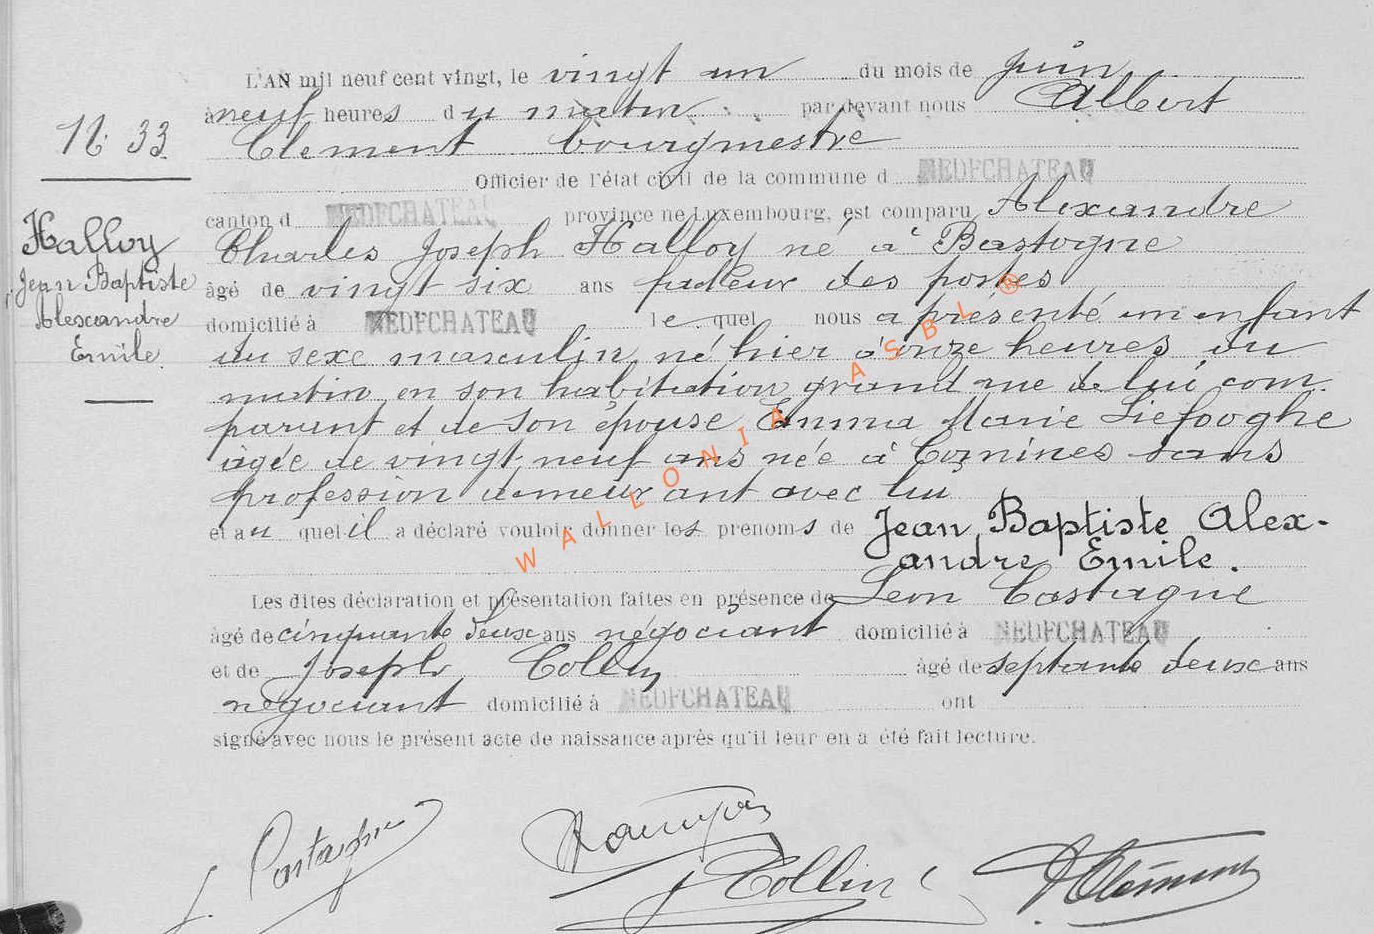 L'AN mil neuf cent vingt, le vingt un du mois de juin
à neuf heures du matin par devant nous Albert
Clement bourgmestre
Officier de l'état civil de la commune d NEUFCHATEAU
canton d NEUFCHATEAU province de Luxembourg, est comparu Alexandre
Charles Joseph Halloy né à Bastogne
âgé de vingt six ans facteur des postes
domicilié à NEUFCHATEAU lequel nous a présenté un enfant
du sexe masculin, né hier à onze heures du
matin en son habitation grand rue de lui com
parant et de son épouse Emma Marie Liefooghe
âgée de vingt neuf ans née à Comines sans
profession demeurant avec lui
et auquel il a déclaré vouloir donner les prenoms de Jean Baptiste Alex-
andre Emile.
Les dites déclaration et présentation faites en présence de Léon Castagne
âgé de cinquante deux ans négociant domicilié à NEUFCHATEAU
et de Joseph Collin âgé de septante deux ans
négociant domicilié à NEUFCHATEAU ont
signé avec nous le présent acte de naissance après qu'il leur en a été fait lecture.
N. 33
Halloy
Jean Baptiste
Alexandre
Emile
WALLONIA ASBL ®
Castagne
J Collin
A Clément